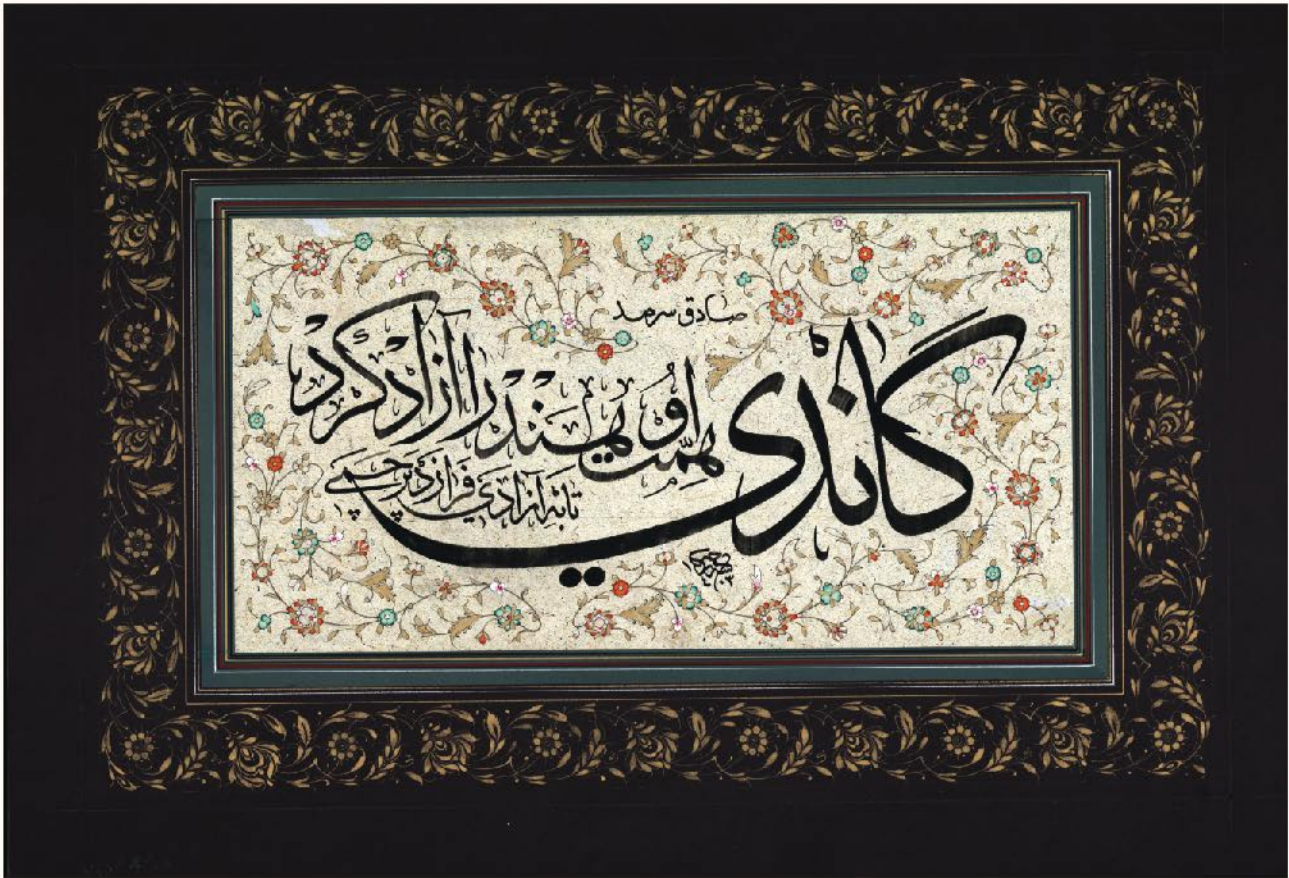 صادق سرمد
گاندی
همّت او هند را آزاد کرد
تا به آزادی فرازد پرچمی